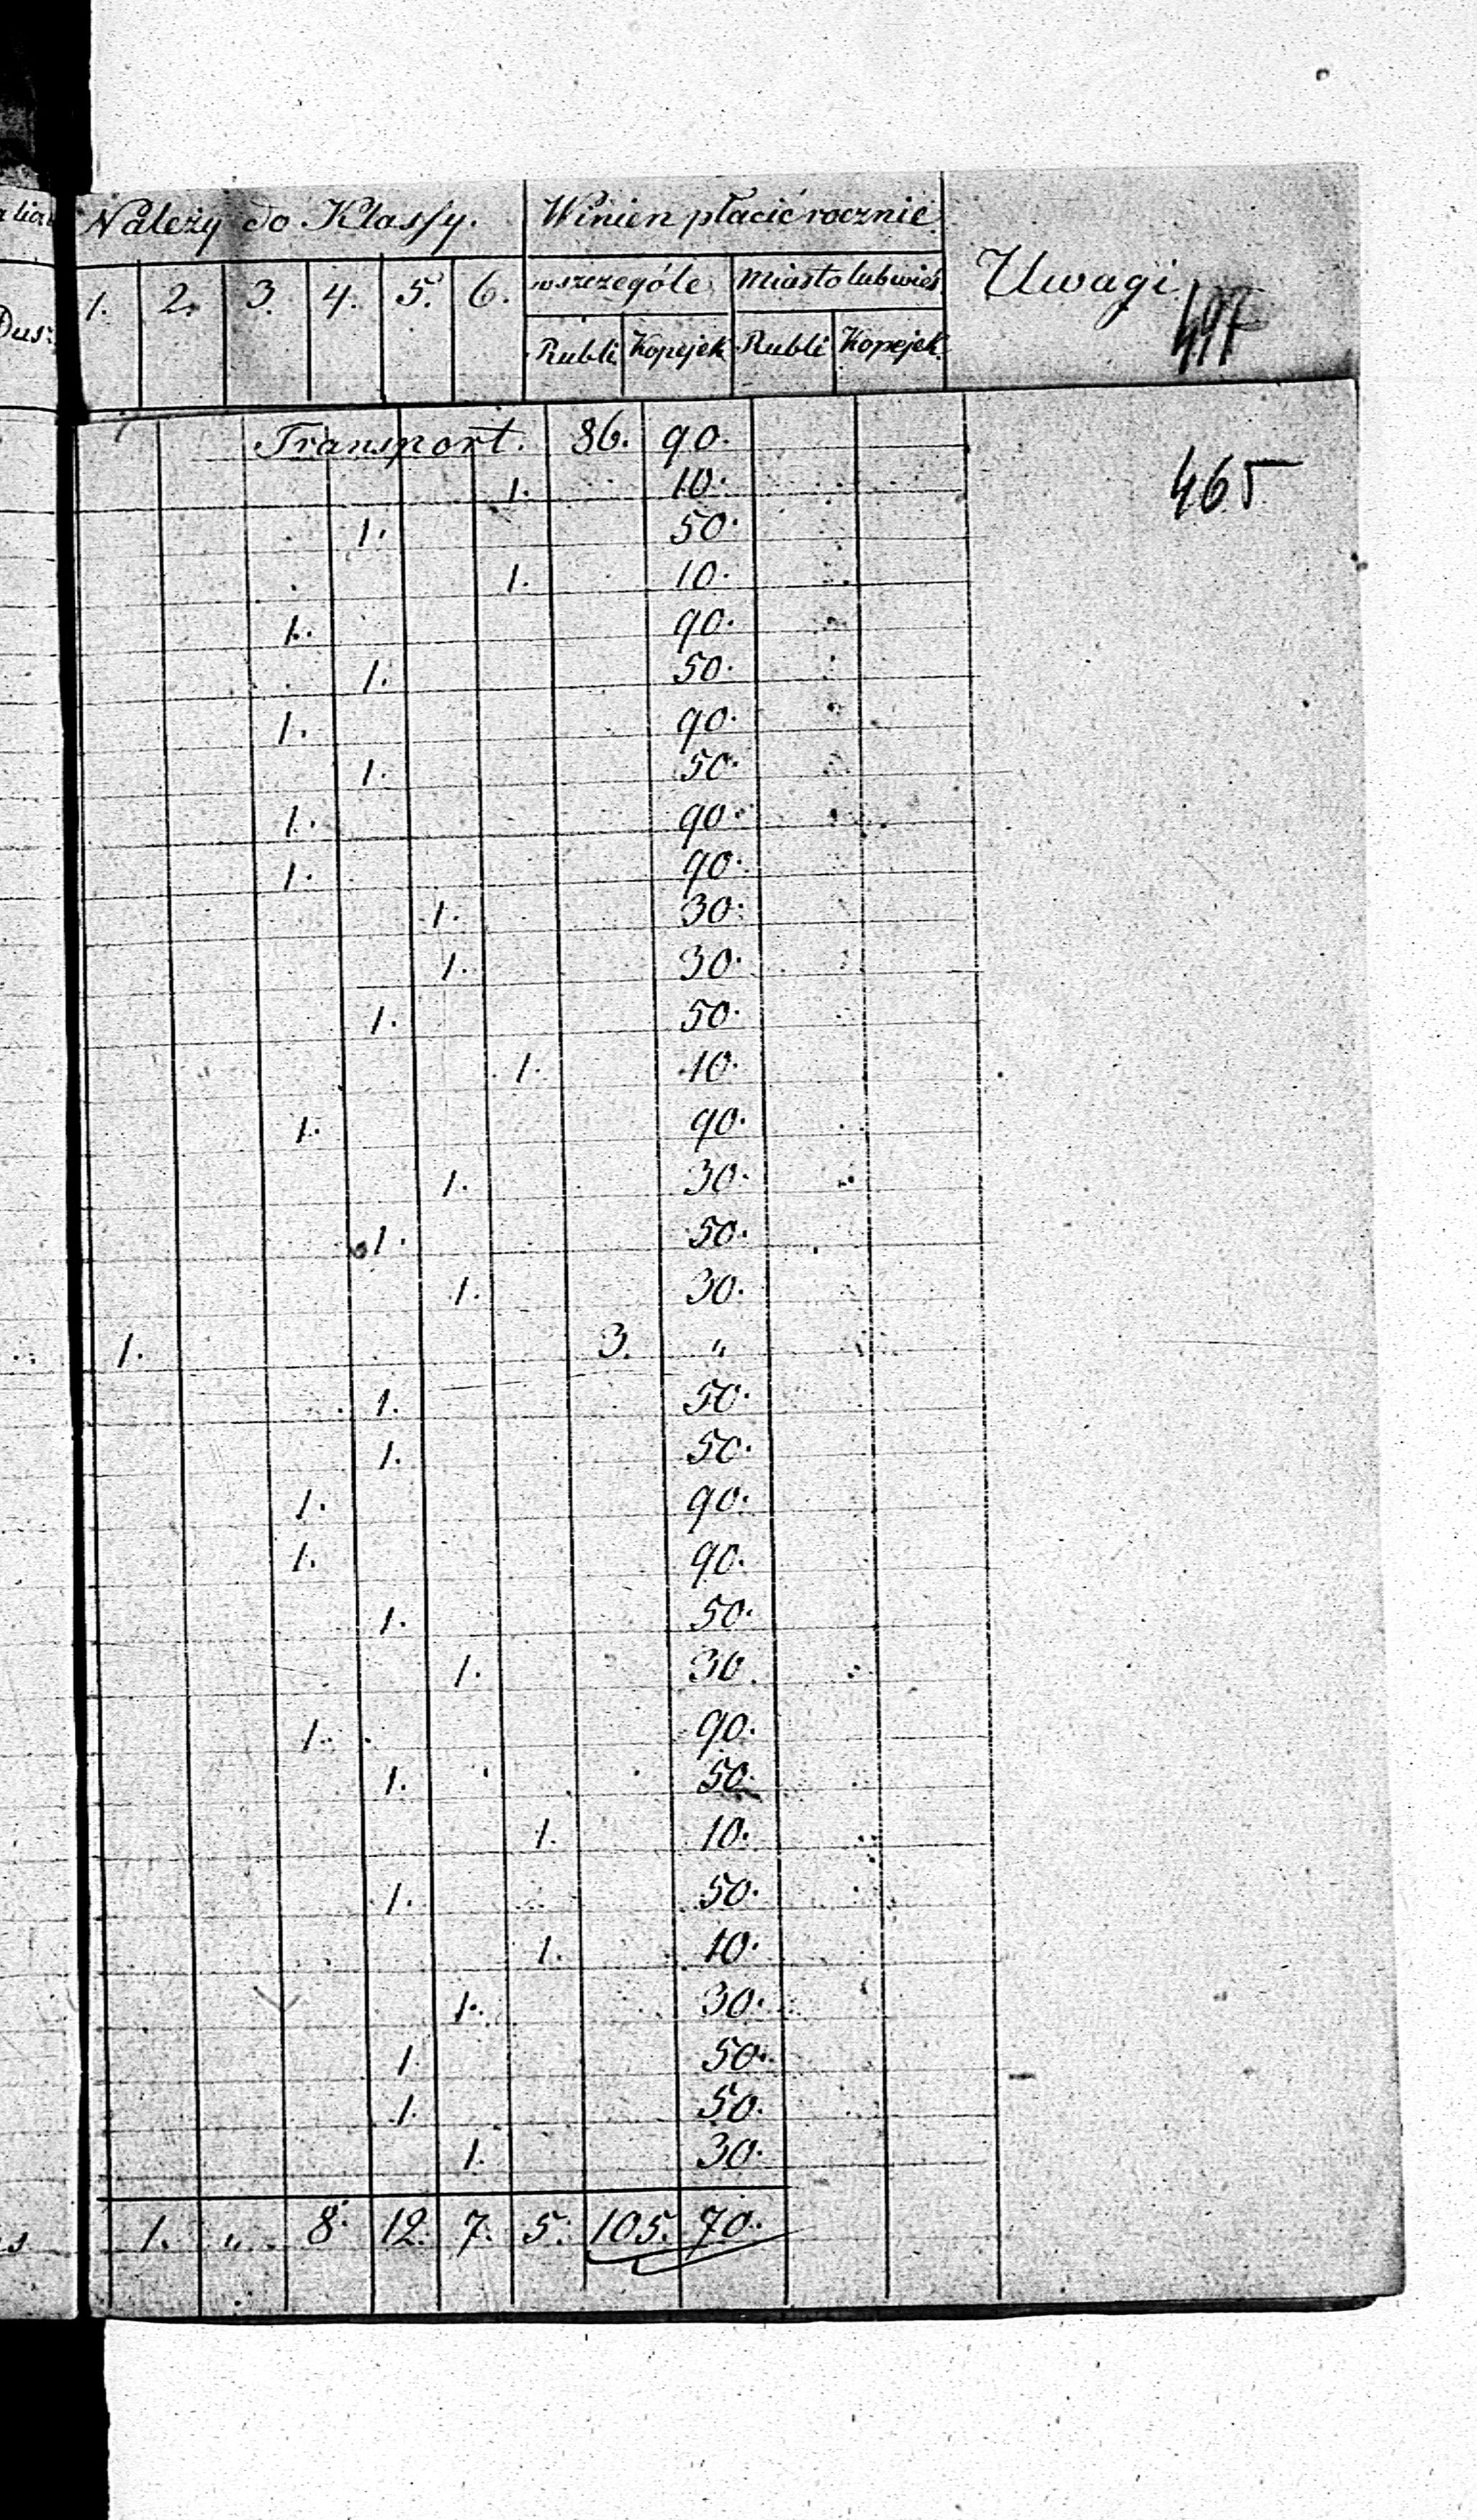 Należy do Klassy. Winien płacić rocznie.
1. 2. 3. 4. 5. 6. wszczególe Miasto lub wieś Uwagi
Dus:
Rubli Kopejek Rubli Kopejek
Transport. 86. 90.
465
1. 10.
1. 50.
1. 10.
1. 90.
1. 50.
1. 90.
1. 50.
1. 90.
1. 90.
1. 30.
1. 30.
1. 50.
1. 10.
1. 90.
1. 30.
1. 50.
1. 30.
1. 3. "
1. 50.
1. 50.
1. 90.
1. 90.
1. 50.
1. 30.
1. 90.
1. 50.
1. 10.
1. 50.
1. 10.
1. 30.
1. 50.
1. 50.
1. 30.
1. " 8. 12. 7. 5. 105. 70.